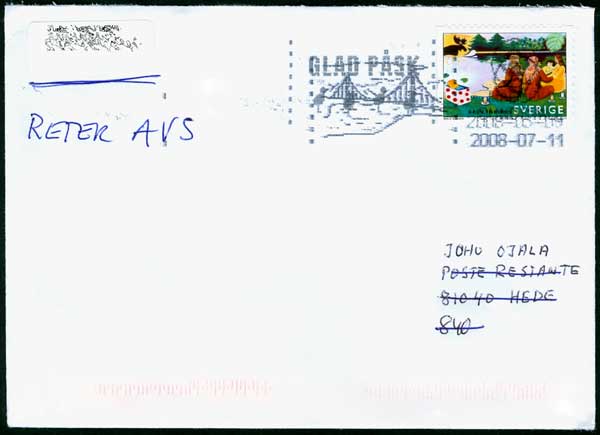 RETER AVS
GLAD PÅSK
SVERIGE
2008-07-11
JOHU OJALA
POSTE RESTANTE
81040 HEDE
840